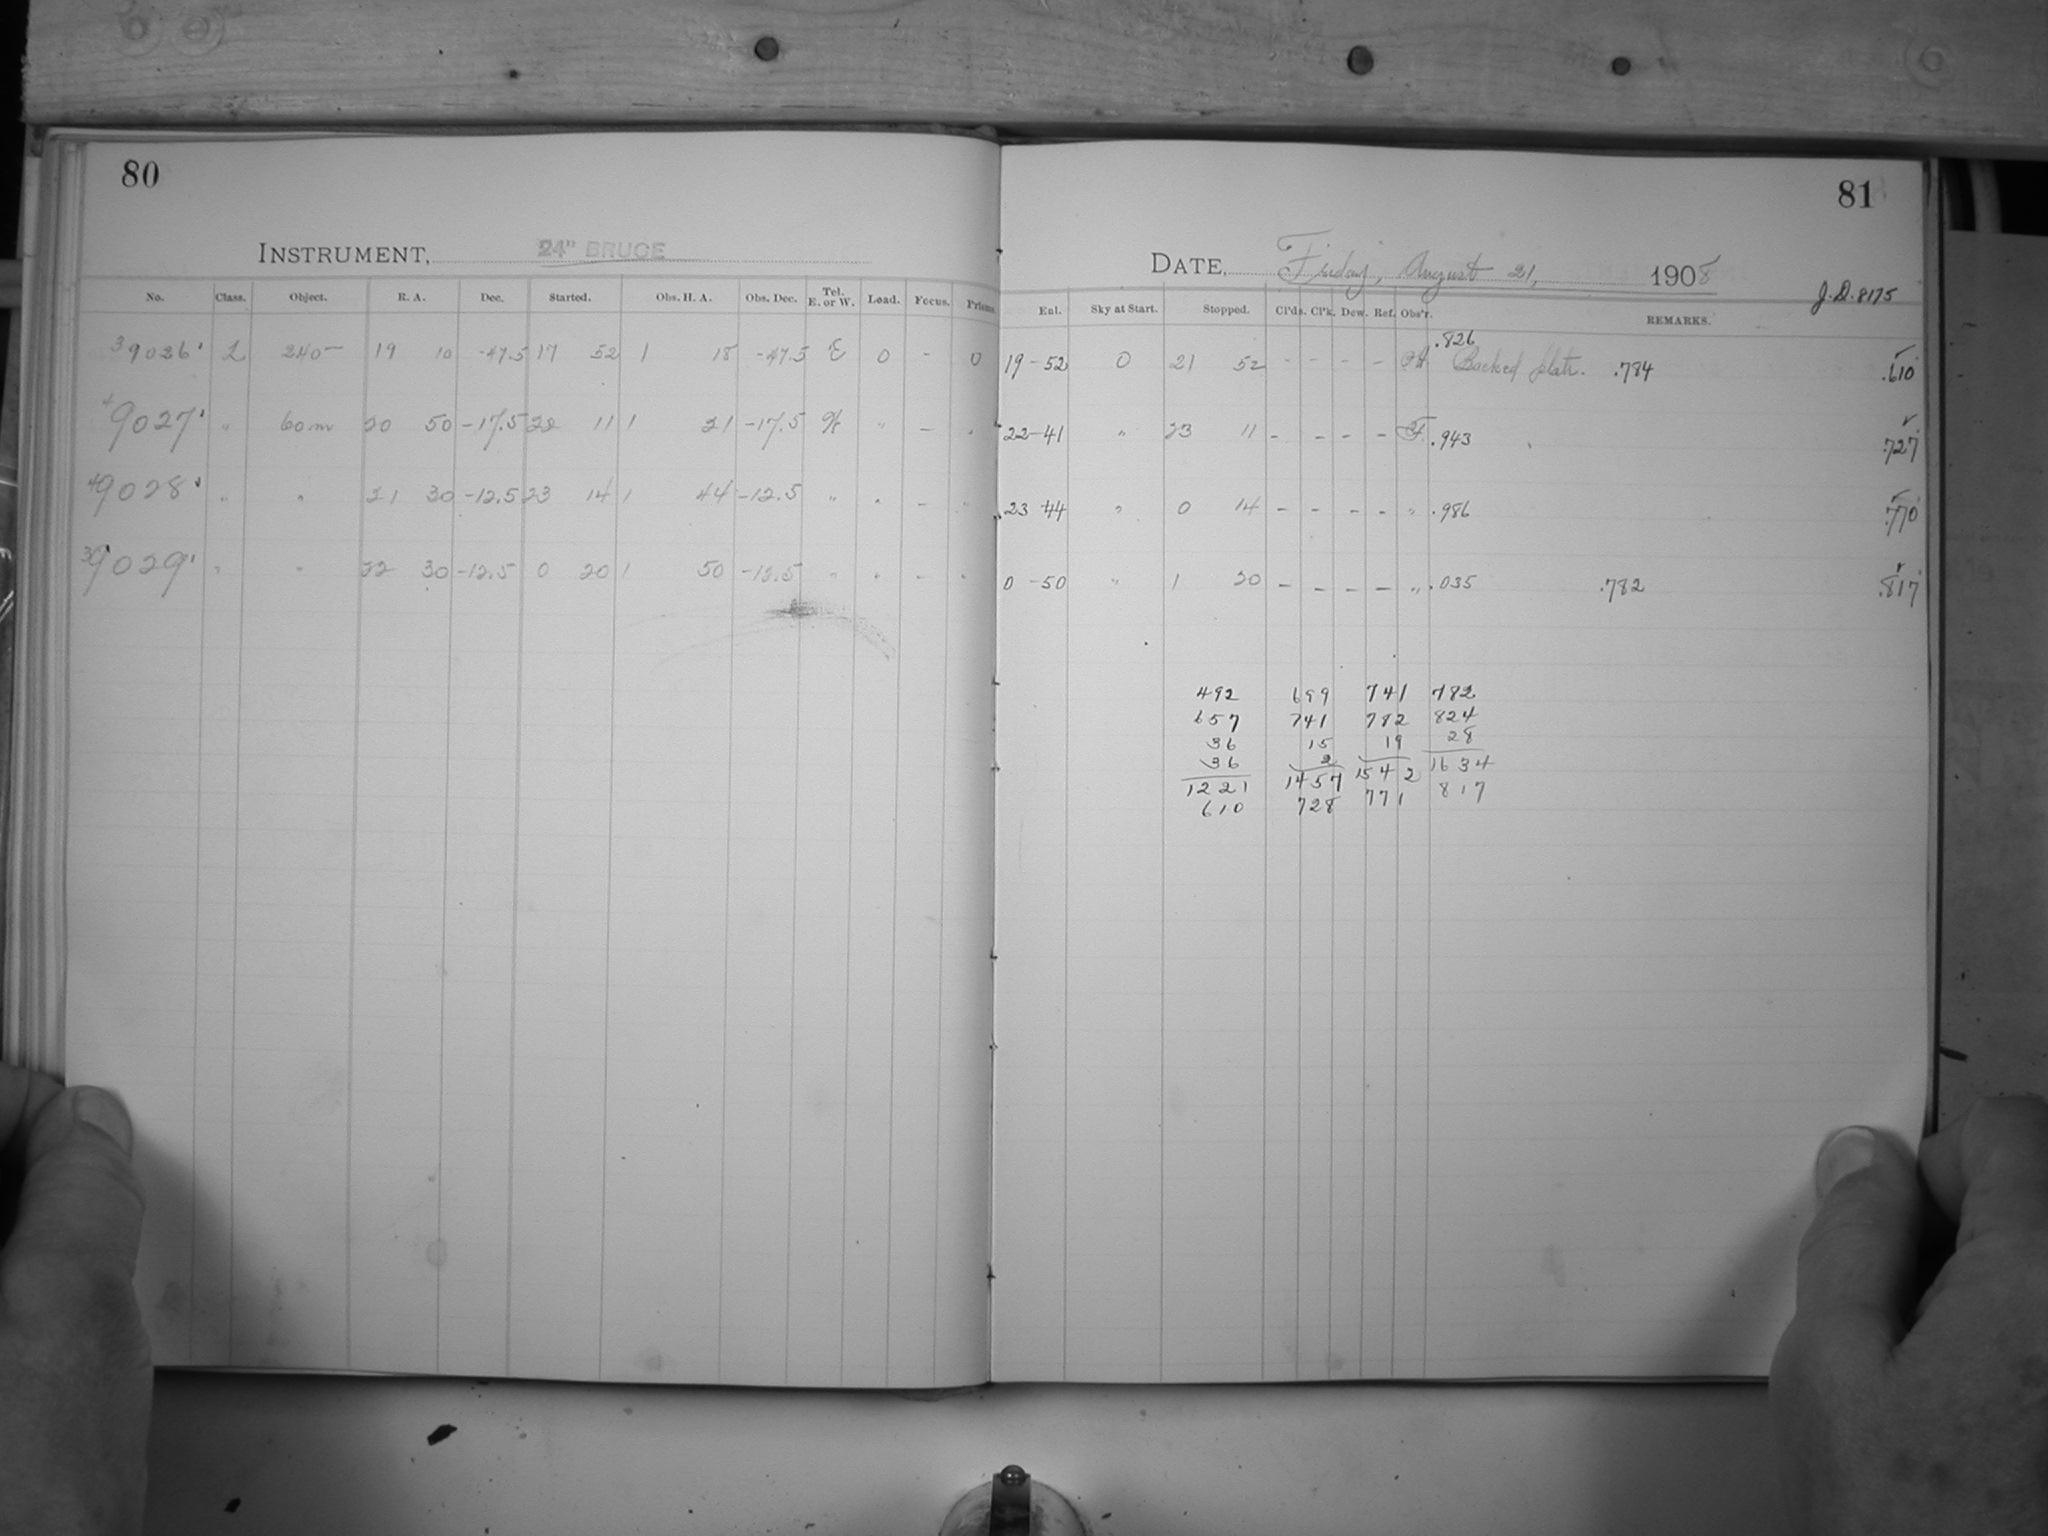 80
INSTRUMENT, 24" BRUCE
No. Class. Object. R. A. Dec. Started. Obs. H. A. Obs. Dec. Tel. E. or W. Load. Focus. Prisms.
39026 L 240m 19 10 -47.5 17 52 1 18 -47.5 E 0 - 0
49027 " 60m 20 50 -17.5 22 11 1 21 -17.5 W " - "
49028 " " 21 30 -12.5 23 14 1 44 -12.5 " " - "
39029 " " 22 30 -12.5 0 20 1 50 -12.5 " " - "
81
DATE, Friday, August 21, 1908
J.D. 8175
Enl. Sky at Start. Stopped. Cl'ds. Cl'k. Dew. Ref. Obs'r. REMARKS.
.826
19-52 0 21 52 - - - - Backed plate. .784 .610
22-41 " 23 11 - - - - F. .943 .727
23 44 " 0 14 - - - - " .986 .770
0 -50 " 1 20 - - - - " .035 .782 .817
492 699 741 782
657 741 782 824
36 15 19 28
36 2 1542 1634
1221 1457 771 817
610 728